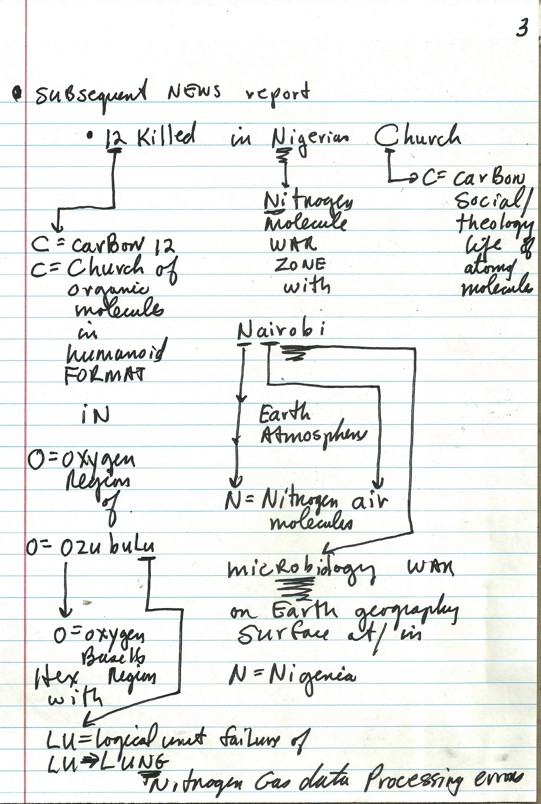 3
• SUBSequent NEWS report
• 12 Killed in Nigerian Church
C = carBon
Social/
theology
life of
atoms/
molecules
Nitrogen
Molecule
WAR
ZONE
with
C = carBon 12
C = Church of
organic
molecules
in
humanoid
FORMAT
iN
O = oxygen
Region
of
O = OzubuLu
O = oxygen
Base16
Hex Region
with
LU = logical unit failure of
LU ⇒ LUNG
Nitrogen Gas data Processing errors
Nairobi
Earth
Atmosphere
N = Nitrogen air
molecules
microbiology WAR
on Earth geography
Surface at/in
N = Nigeria